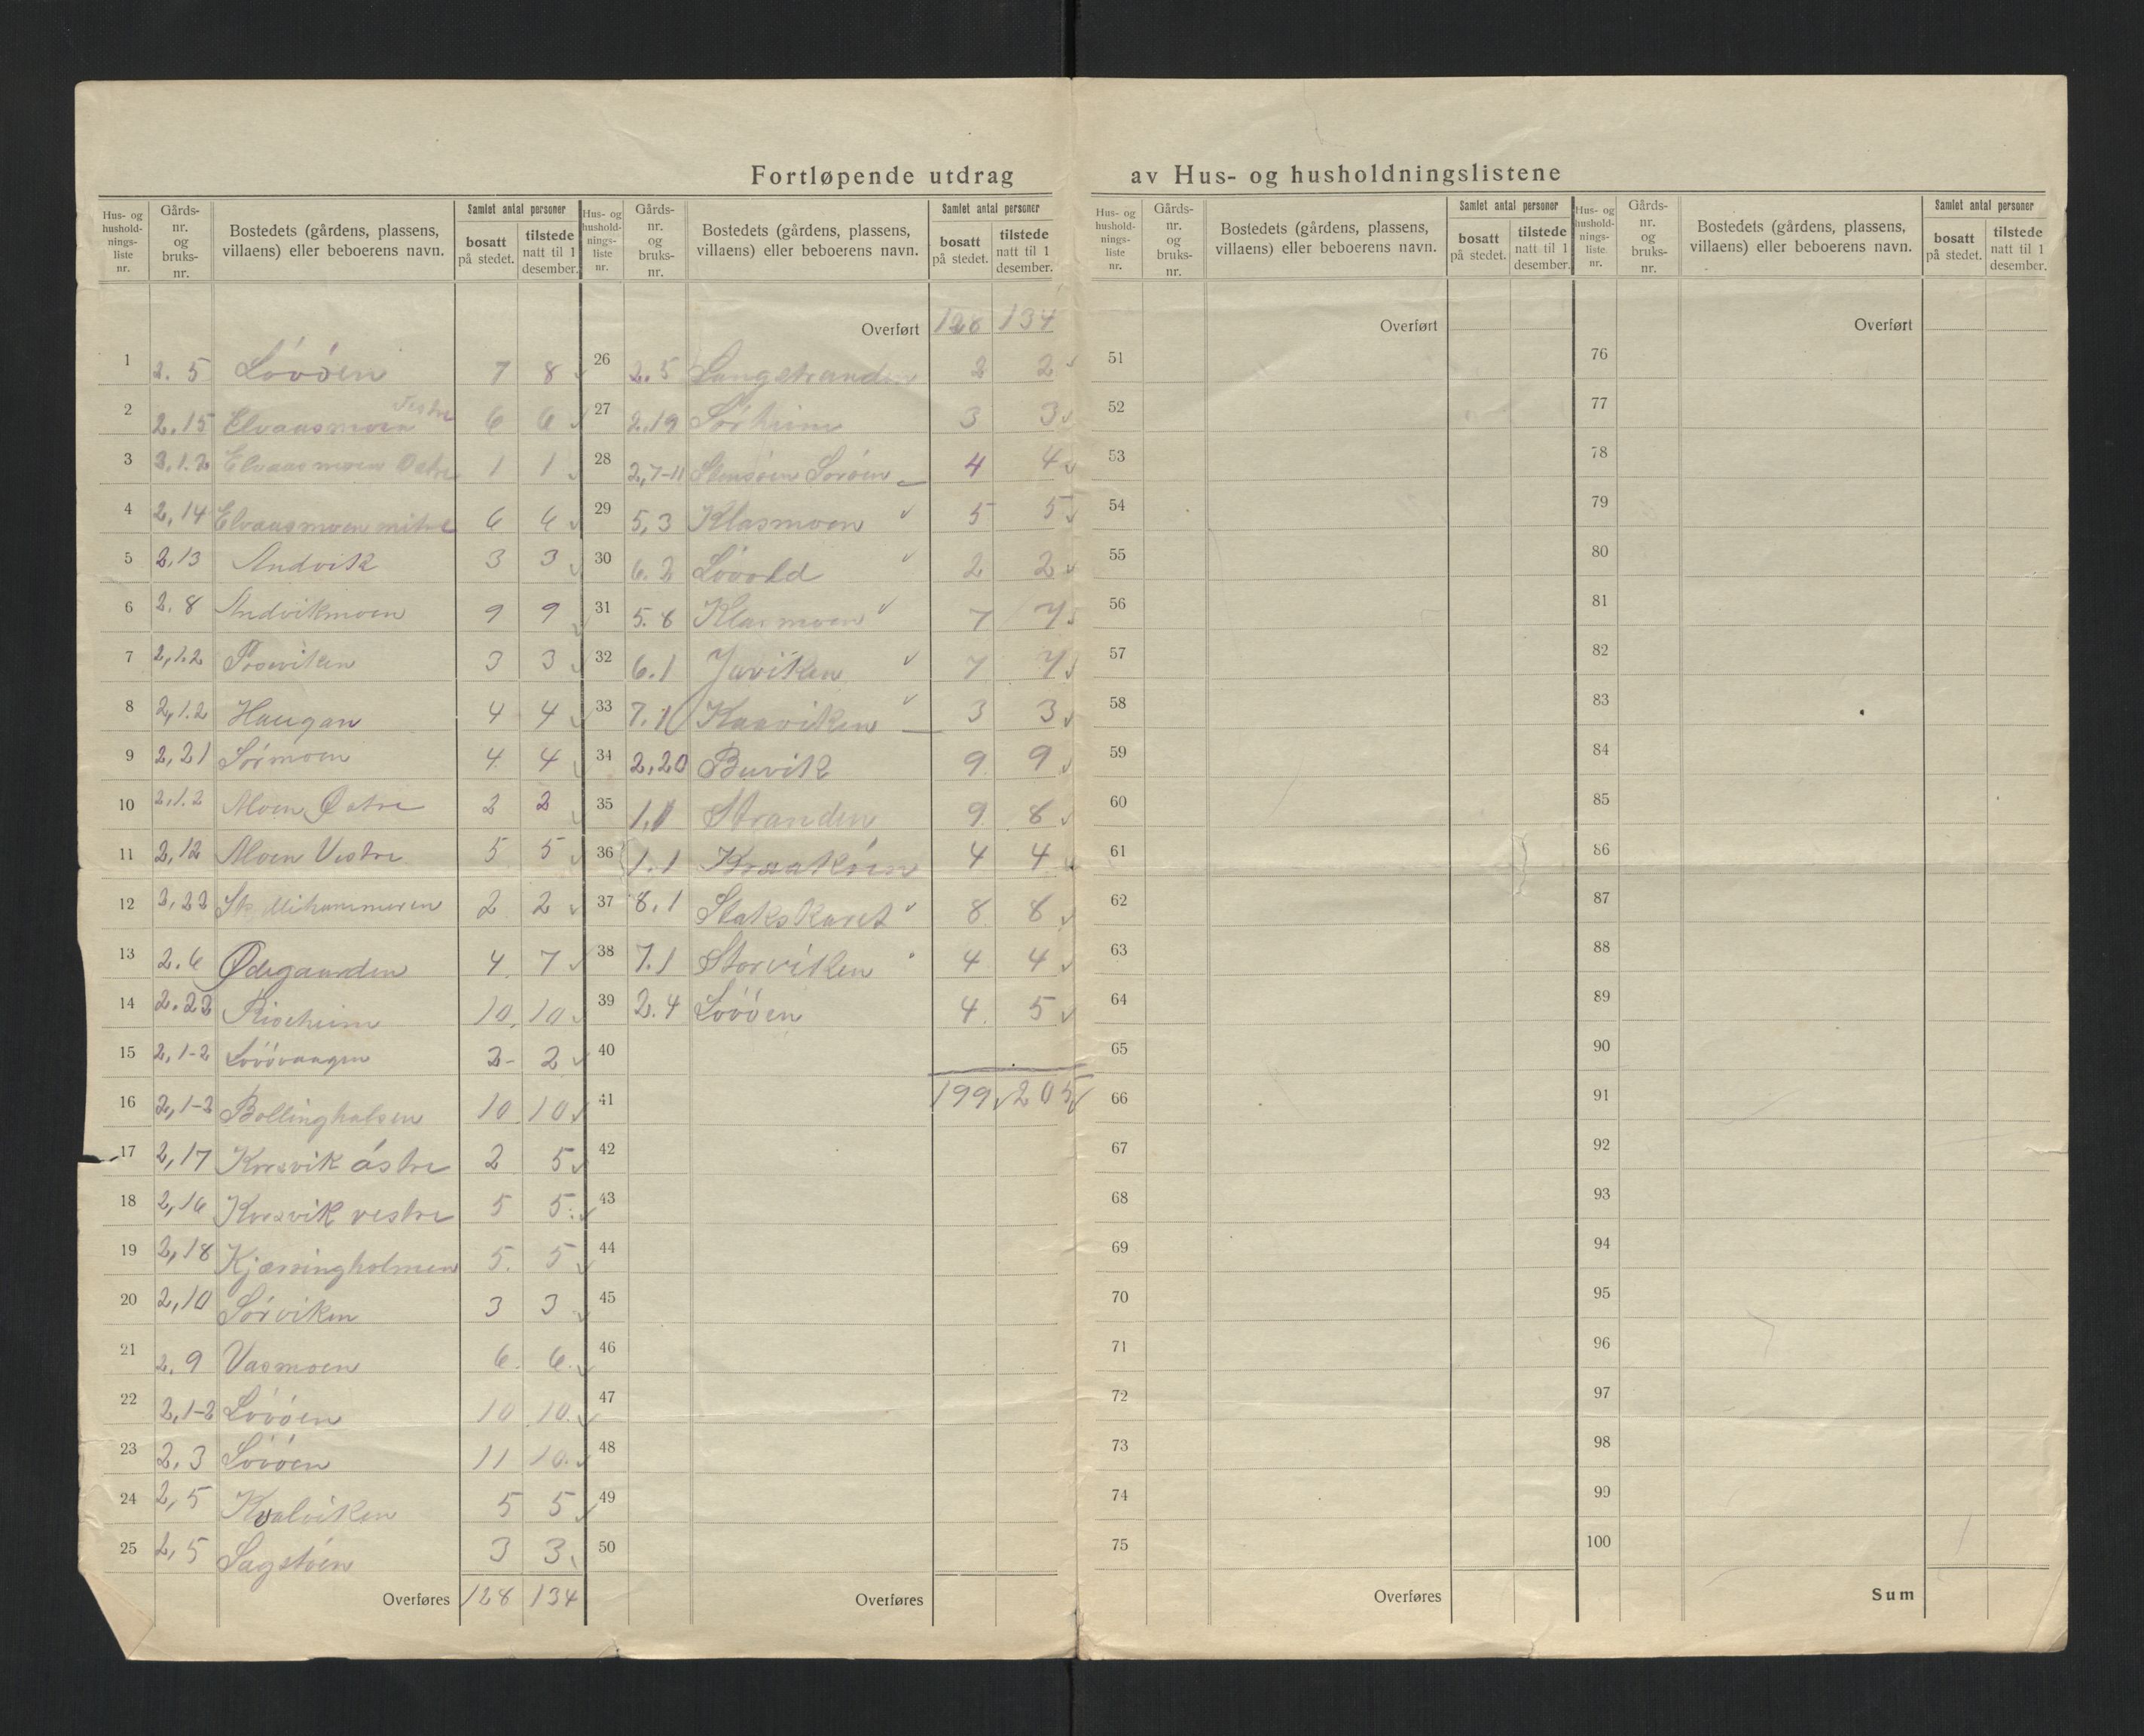 Fortløpende utdrag av Hus- og husholdningslistene
Hus- og hushold-nings-liste nr. Gårds-nr. og bruks-nr. Bostedets (gårdens, plassens, villaens) eller beboerens navn. Samlet antal personer bosatt på stedet. tilstede natt til 1 desember.
1 2. 5 Lövöen 7 8
2 2.15 Elvaasmoen Vestre 6 6
3 2.1.2 Elvaasmoen Østre 1 1
4 2,14 Elvaasmoen mitre 6 6
5 2,13 Andvik 3 3
6 2. 8 Andvikmoen 9 9
7 2,1.2 3 3
8 2,1.2 Haugan 4 4
9 2,21 Sörmoen 4 4
10 2,1.2 Moen Østre 2 2
11 2,12 Moen Vestre 5 5
12 2,22 2 2
13 2.6 Ødegaarden 4 7
14 2.23 Risheim 10 10
15 2,1-2 Lövövaagen 2- 2
16 2,1-2 Bollinghalsen 10 10
17 2,17 Korsvik östre 2 5
18 2,16 Korsvik vestre 5 5
19 2,18 Kjærringholmen 5. 5
20 2,10 Sörviken 3 3
21 2. 9 Vasmoen 6. 6.
22 2,1-2 Lövöen 10 10.
23 2. 3 Lövöen 11 10.
24 2, 5 Kvalviken 5 5
25 2, 5 Sagstöen 3 3
Overføres 128 134
Hus- og hushold-nings-liste nr. Gårds-nr. og bruks-nr. Bostedets (gårdens, plassens, villaens) eller beboerens navn. Samlet antal personer bosatt på stedet. tilstede natt til 1 desember.
Overført 128 134
26 2.5 Langstranden 2 2
27 2.19 Sörheim 3 3
28 2,7-11 4 4
29 5,3 Klasmoen 5 5
30 6. 2 Lövold 2 2
31 5.8 Klasmoen 7 7
32 6.1 Juviken 7 7
33 7.1 Kaaviken 3 3
34 2,20 Buvik 9 9
35 1,1 Stranden 9 8
36 1.1 Kraaköen 4 4
37 8.1 Stakskaret 8 8
38 7.1 Storviken 4 4
39 2.4 Lövöen 4 5
40
41 199 205
42
43
44
45
46
47
48
49
50
Overføres
Hus- og hushold-nings-liste nr. Gårds-nr. og bruks-nr. Bostedets (gårdens, plassens, villaens) eller beboerens navn. Samlet antal personer bosatt på stedet. tilstede natt til 1 desember.
Overført
51
52
53
54
55
56
57
58
59
60
61
62
63
64
65
66
67
68
69
70
71
72
73
74
75
Overføres
Hus- og hushold-nings-liste nr. Gårds-nr. og bruks-nr. Bostedets (gårdens, plassens, villaens) eller beboerens navn. Samlet antal personer bosatt på stedet. tilstede natt til 1 desember.
Overført
76
77
78
79
80
81
82
83
84
85
86
87
88
89
90
91
92
93
94
95
96
97
98
99
100
Sum